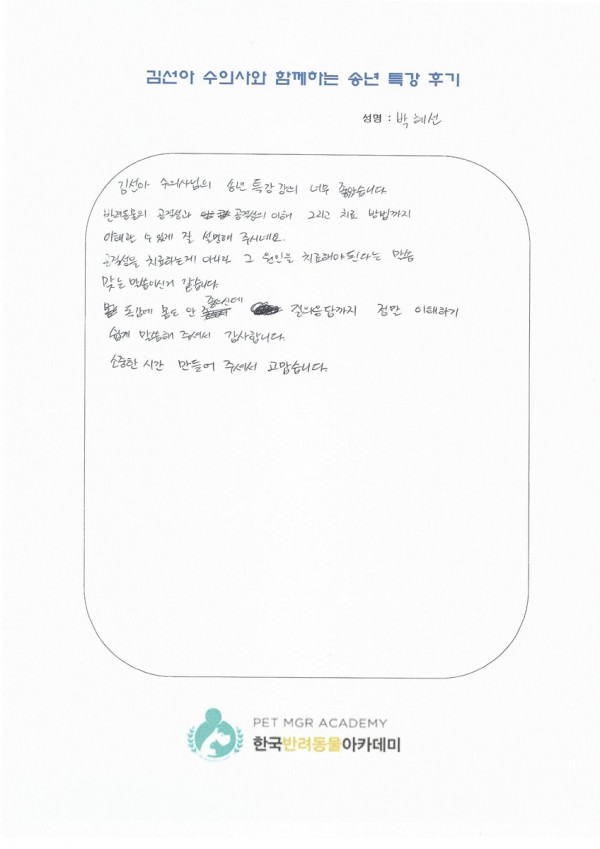 김선아 수의사와 함께하는 송년 특강 후기
성명 : 박혜선
김선아 수의사님의 송년 특강 강의 너무 좋았습니다
반려동물의 공격성과 공격성의 이해 그리고 치료 방법까지
이해할 수 있게 잘 설명해 주시네요.
공격성을 치료하는게 아니라 그 원인을 치료해야된다는 말씀
맞는 말씀이신거 같습니다.
독감에 몸도 안 좋으신데 질의응답까지 정말 이해하기
쉽게 말씀해 주셔서 감사합니다.
소중한 시간 만들어 주셔서 고맙습니다.
PET MGR ACADEMY
한국반려동물아카데미